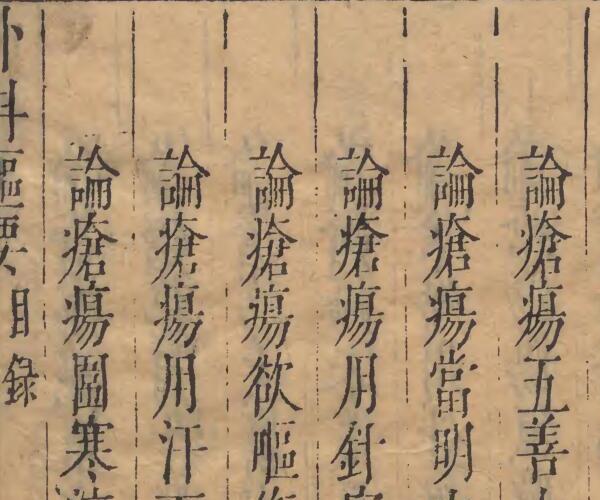 論瘡瘍五善
論瘡瘍當明
論瘡瘍用針
論瘡瘍欲嘔
論瘡瘍用汗
論瘡瘍圊寒
外科樞要 目錄